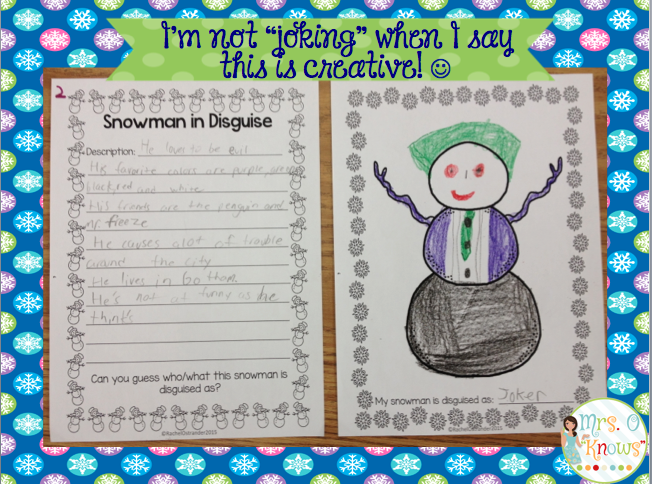 I'm not "joking" when I say
this is creative! ☺
2
Snowman in Disguise
Description: He loves to be evil
His favorite colors are purple, green
black, red and white
His friends are the penguin and
mr. freeze
He causes alot of trouble
around the city
He lives in Gotham
He's not at funny as he
think's
Can you guess who/what this snowman is
disguised as?
©RachelOstrander2015
My snowman is disguised as: Joker
©RachelOstrander2015
Mrs. O
"Knows"